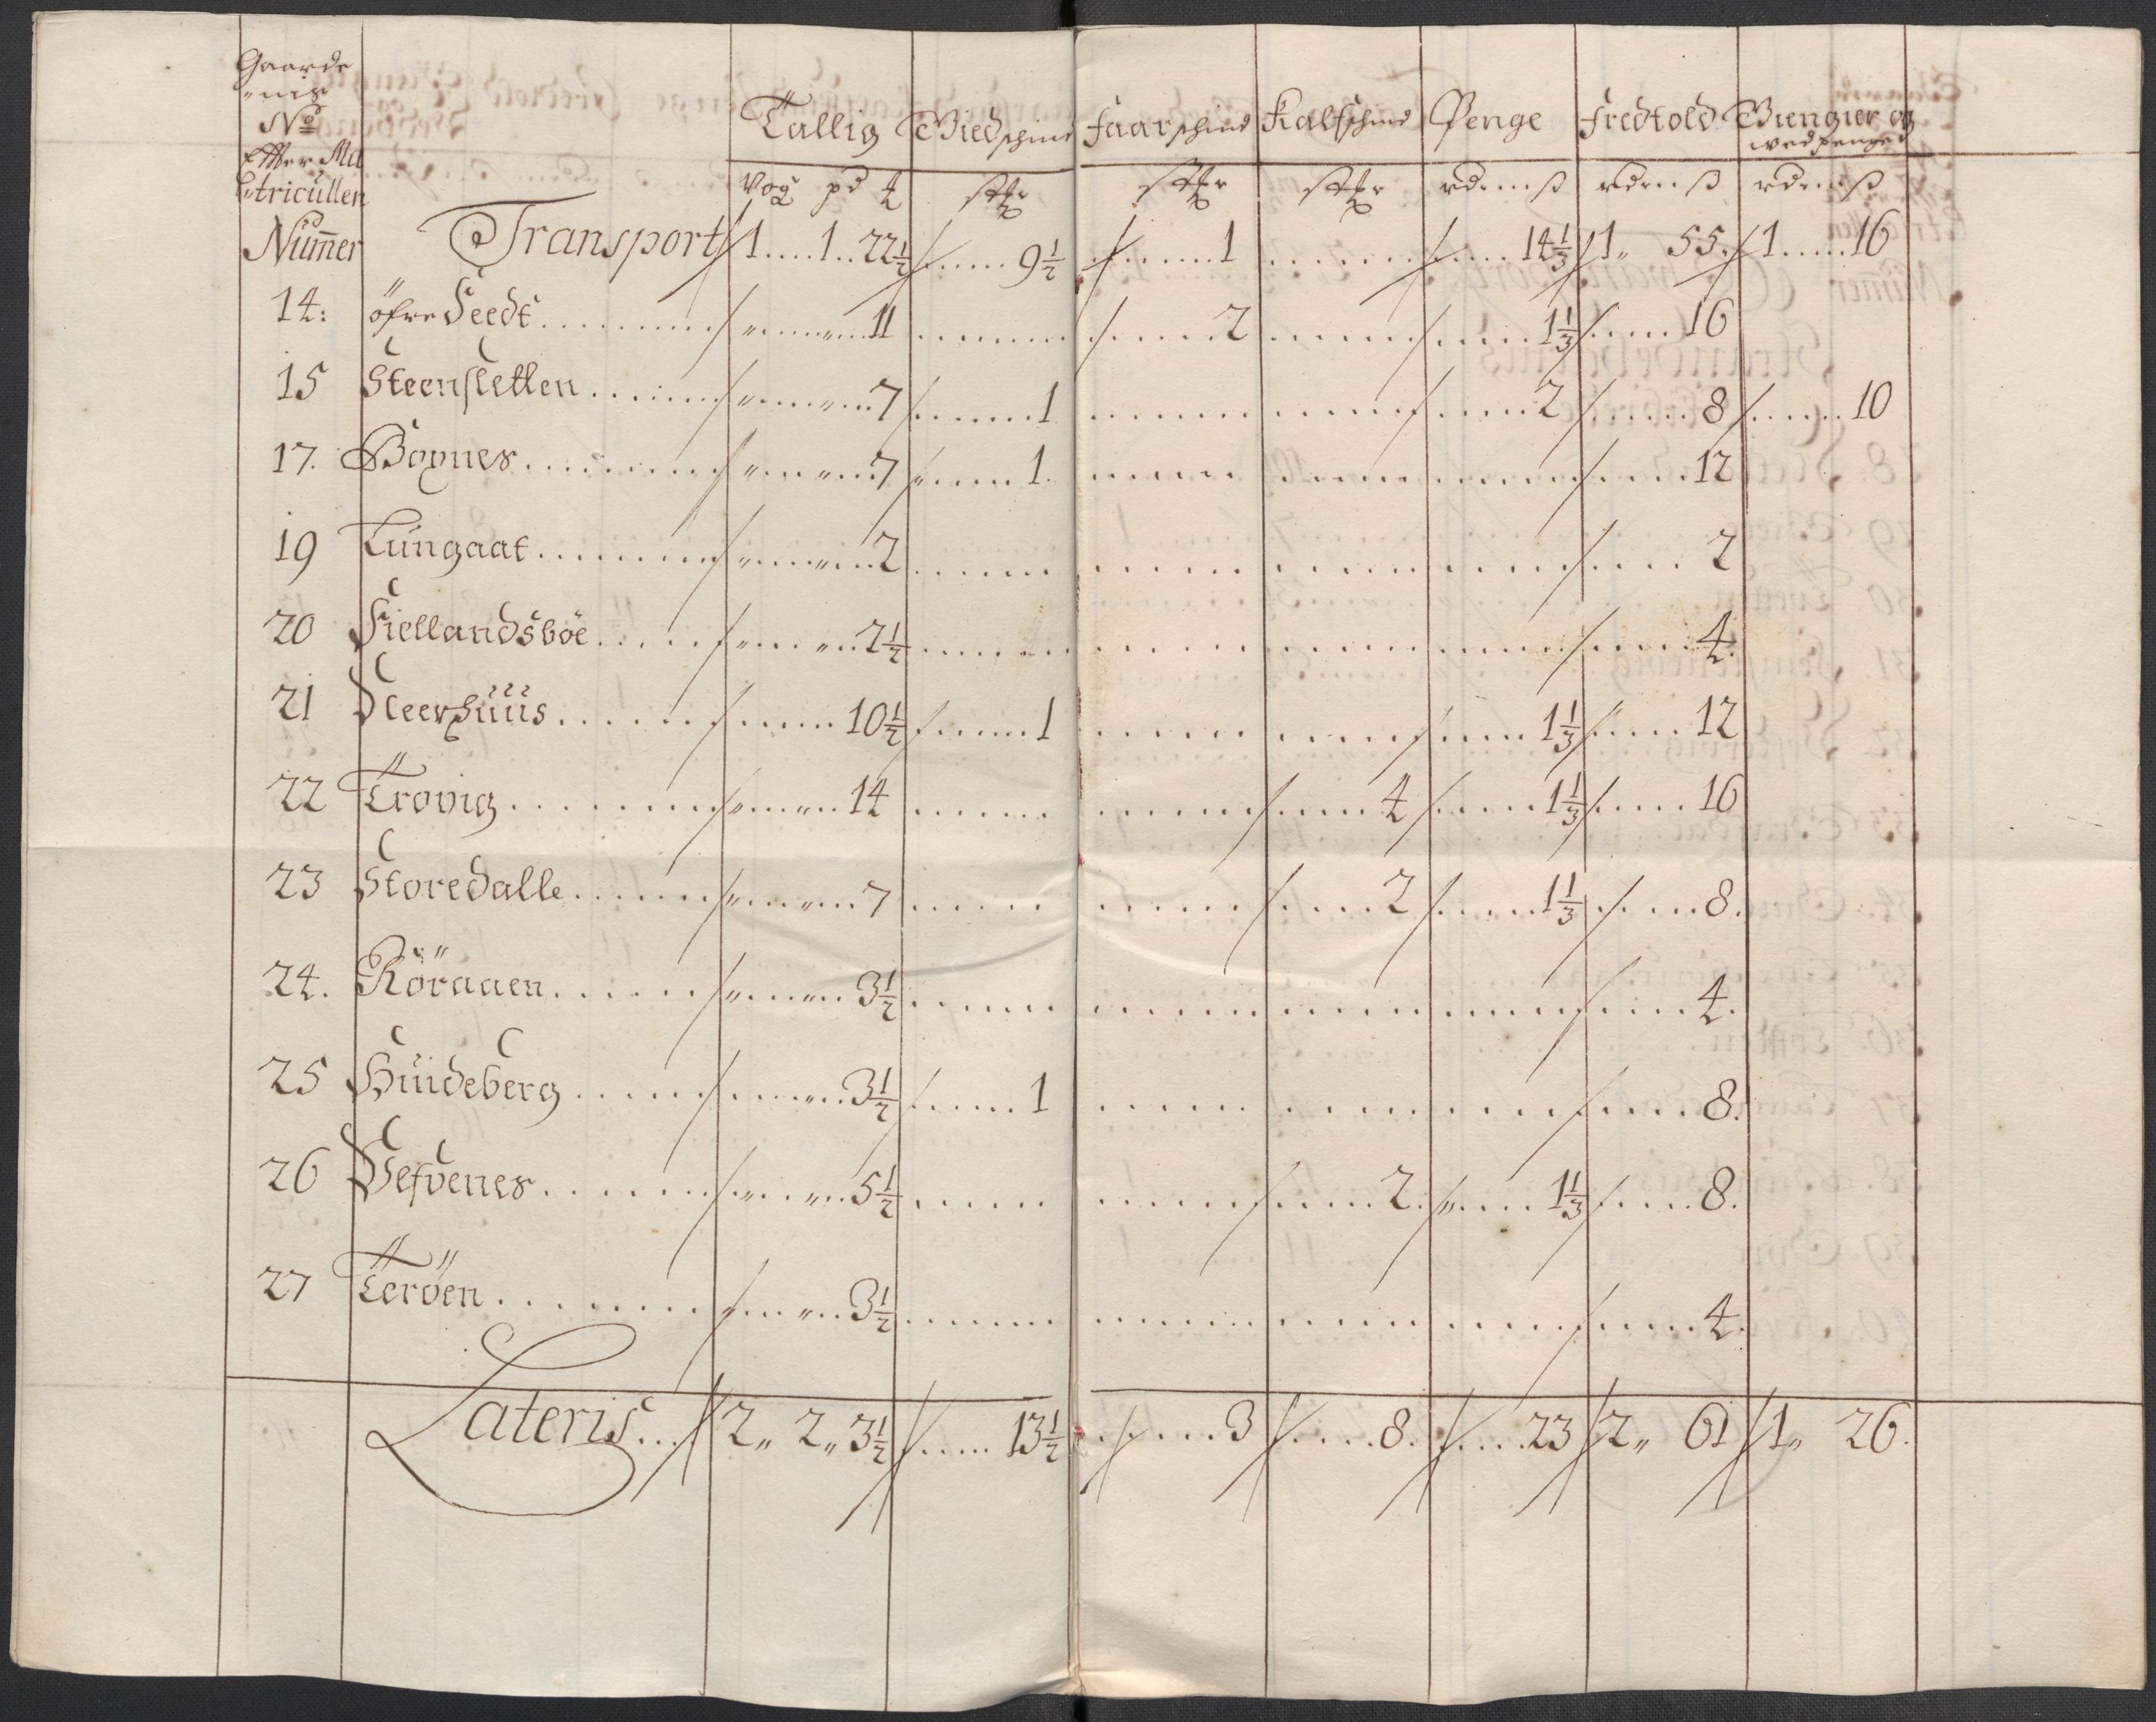 Gaarde
No
Effter Ma
tricullen
Nummer
Tallig Giedschind Faarschind Kalfschind Penge Fredtold Giengier og
wedpenge
Vog pd
Transport 1 1 22½ 9½ 1 14⅓ 1 55 1 16
14: öfre Feedt 11 2 1⅓ 16
15 Steensletten 7 1 2 8 10
17. Bognes 7 1 12
19 Lungaat 2 2
20 Fiellandsböe 2½ 4
21 Fleerhuus 10½ 1 1⅓ 12
22 Trovig 14 4 1⅓ 16
23 Storedalle 7 2 1⅓ 8
24. Röraaen 3½ 4
25 Huideberg 3½ 1 8
26 Vefvenes 5½ 2 1⅓ 8
27 Teröen 3½ 4
Lateris 2 „ 2 „ 3½ 13½ 3 8 23 2 „ 61 1 „ 26